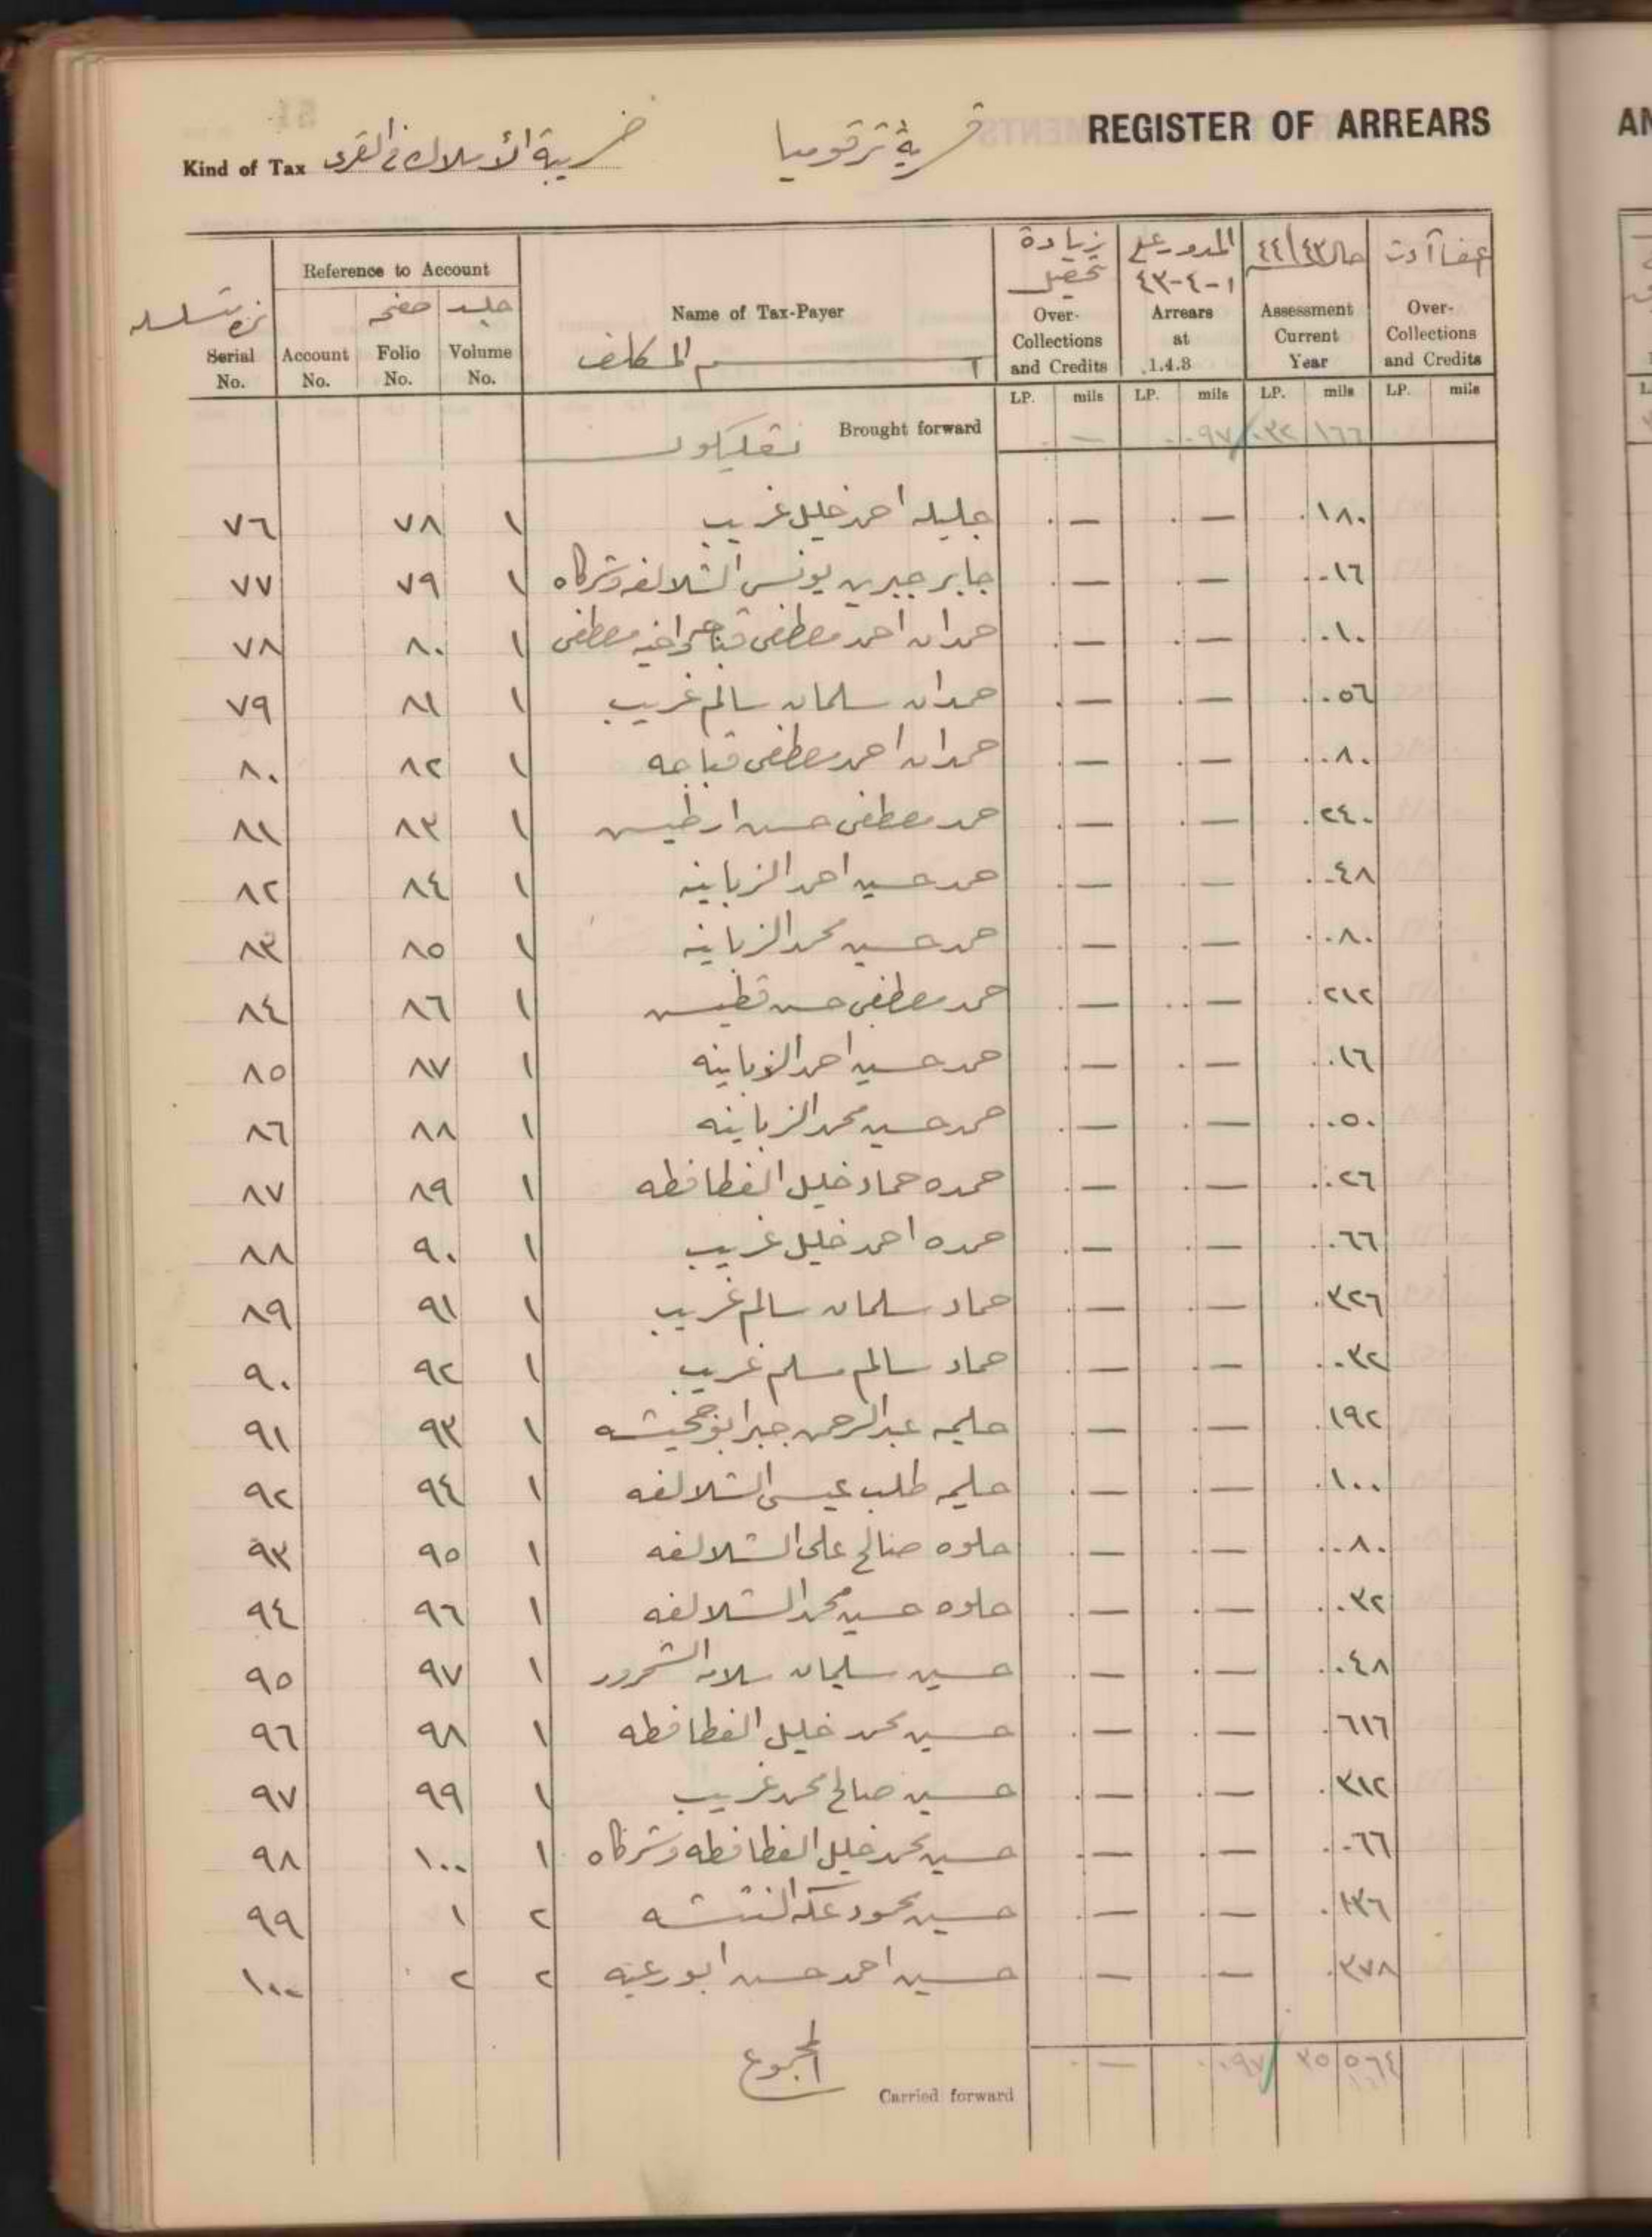 REGISTER OF ARREARS
قرية ترقوميا
Kind of Tax ضريبة الأملاك في القرى
Serial No. نمرة متسلسله
Reference to Account
Account No.
Folio No. صفحه
Volume No. جلد
Name of Tax-Payer
اسم المكلف
زيادة تحصيل Over-Collections and Credits
المدور على ١-٤-٤٣ Arrears at 1.4.3
حال ٤٤/٤٣ Assessment Current Year
Over-Collections and Credits
LP. mils LP. mils LP. mils LP. mils
Brought forward . — .٠٩٧ ٠٣٢ ١٦٦
٧٦ ٧٨ ١ جليله احمد خليل غريب . — . — .١٨٠
٧٧ ٧٩ ١ جابر جبرين يونس الشلالفه وشركاه . — . — .٠١٦
٧٨ ٨٠ ١ حمدان احمد مصطفى قباجه واخيه مصطفى . — . — .٠١٠
٧٩ ٨١ ١ حمدان سلمان سالم غريب . — . — .٠٥٦
٨٠ ٨٢ ١ حمدان احمد مصطفى قباجه . — . — .٠٨٠
٨١ ٨٣ ١ حمد مصطفى حسن ارطيس . — . — .٢٤٠
٨٢ ٨٤ ١ حمد حسين احمد الزباينه . — . — .٠٤٨
٨٣ ٨٥ ١ حمد حسين محمد الزباينه . — . — .٠٨٠
٨٤ ٨٦ ١ حمد مصطفى حسن قطيس . — . — .٢١٢
٨٥ ٨٧ ١ حمد حسين احمد الزباينه . — . — .٠١٦
٨٦ ٨٨ ١ حمد حسين محمد الزباينه . — . — .٠٥٠
٨٧ ٨٩ ١ حمده حماد خليل الفطافطه . — . — .٠٢٦
٨٨ ٩٠ ١ حمده احمد خليل غريب . — . — .٠٦٦
٨٩ ٩١ ١ حماد سلمان سالم غريب . — . — .٣٢٦
٩٠ ٩٢ ١ حماد سالم مسلم غريب . — . — .٠٣٢
٩١ ٩٣ ١ حليمه عبدالرحمن جبر ابو جحيشه . — . — .١٩٢
٩٢ ٩٤ ١ حليمه طلب عيسى الشلالفه . — . — .١٠٠
٩٣ ٩٥ ١ حلوه صالح على الشلالفه . — . — .٠٨٠
٩٤ ٩٦ ١ حلوه حسين محمد الشلالفه . — . — .٠٣٢
٩٥ ٩٧ ١ حسين سليمان سلامه الشحرور . — . — .٠٤٨
٩٦ ٩٨ ١ حسين محمد خليل الفطافطه . — . — .٦١٦
٩٧ ٩٩ ١ حسين صالح محمد غريب . — . — .٣١٢
٩٨ ١٠٠ ١ حسين محمد خليل الفطافطه وشركاه . — . — .٠٦٦
٩٩ ١ ٢ حسين محمود عكه النتشه . — . — .١٣٦
١٠٠ ٢ ٢ حسين احمد حسن ابو رعيه . — . — .٣٧٨
المجموع
Carried forward . — .٠٩٧ ٣٥ ٥٦٤